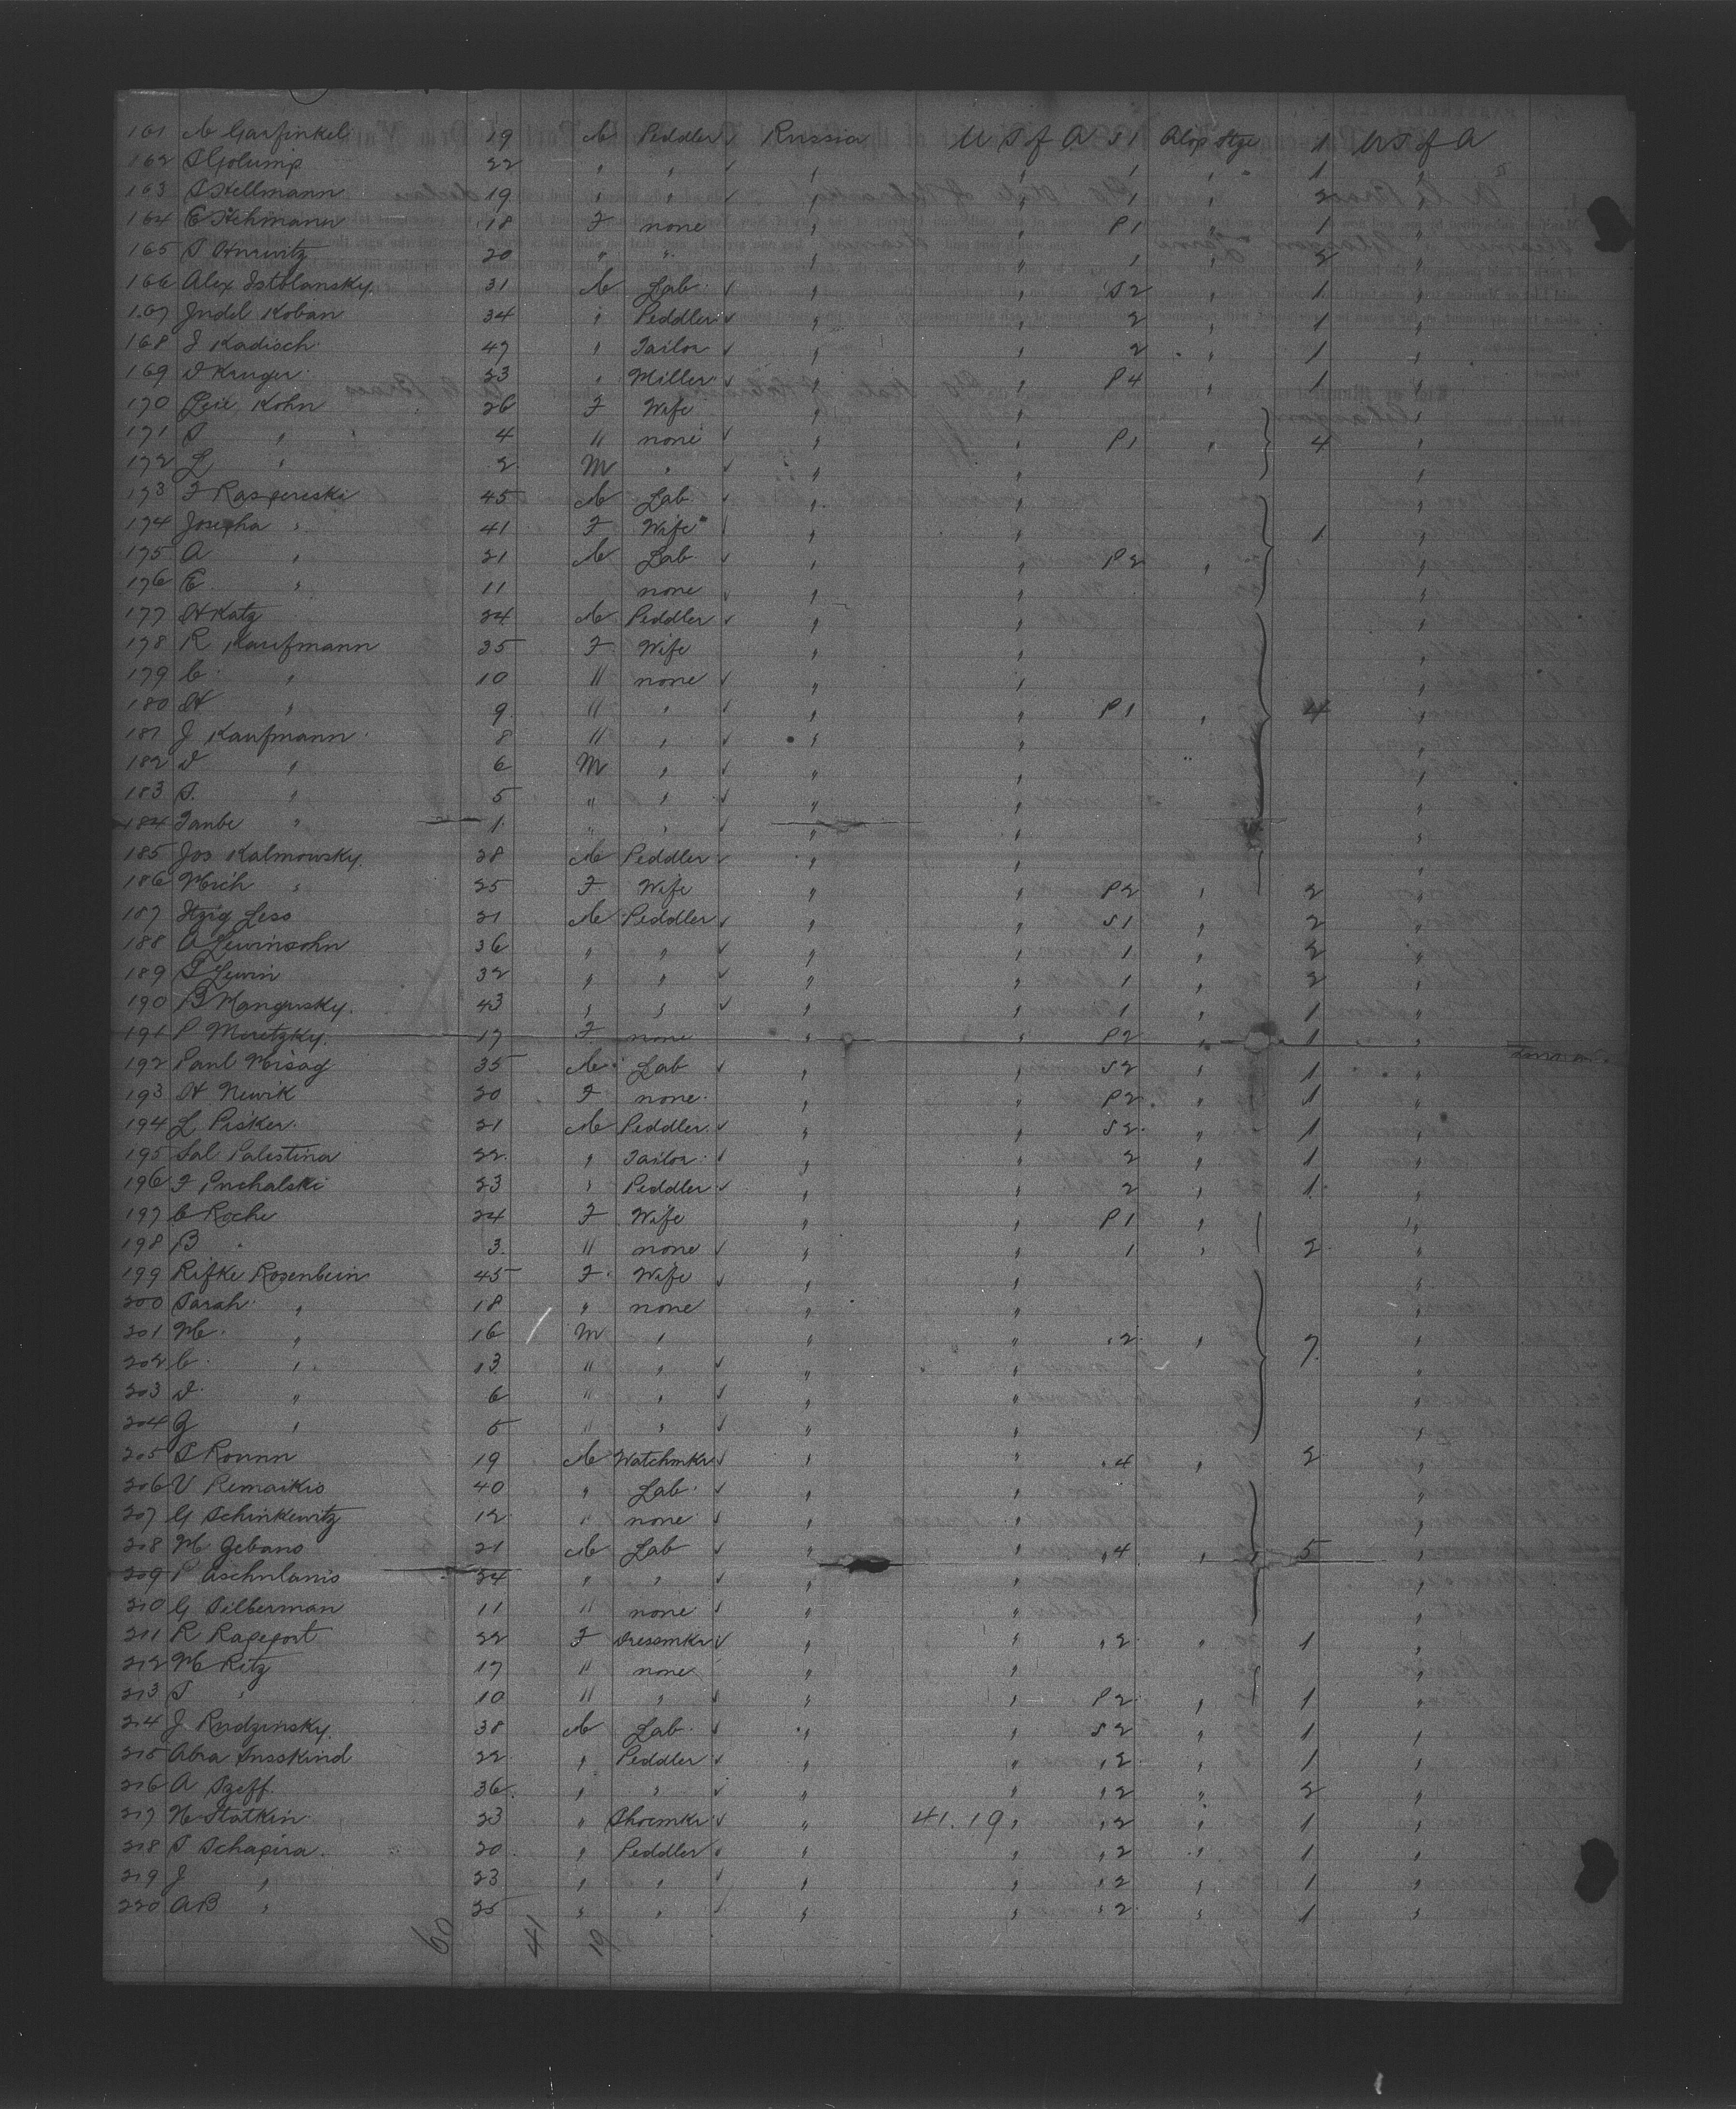 161 M Garfinkel 19 M Peddler Russia U S of A S1 Alop Stge 1 U S of A
162 S Golump 22 " " " " 1 " 1 "
163 S Hellmann 19 " " " " 1 " 2 "
164 E Hehmann 18 F none " " P1 " 1 "
165 S Hurwitz 20 " " " " 1 " 2 "
166 Alex Istblansky 31 M Lab " " S2 " 1 "
167 Judel Koban 34 " Peddler " " 2 " 1 "
168 J Kadisch 47 " Tailor " " 2 " 1 "
169 D Kruger 23 " Miller " " P4 " 1 "
170 Kohn 26 F Wife " " "
171 S " 4 " none " " P1 " 4 "
172 L " 2 M " " " "
173 F Raspereski 45 M Lab " " "
174 Josepha " 41 F Wife " " 1 "
175 A " 21 M Lab " " P2 " "
176 E " 11 none " " "
177 H Katz 24 M Peddler " " "
178 R Kaufmann 35 F Wife " " "
179 C " 10 " none " " "
180 H " 9 " " " " P1 " 4 "
181 J Kaufmann 8 " " " " "
182 D " 6 M " " " "
183 S " 5 " " " " "
184 Taube " 1 " " " " "
185 Jos Kalmowsky 28 M Peddler " " "
186 Mich " 25 F Wife " " P2 " 2 "
187 Itzig Less 21 M Peddler " " S1 " 2 "
188 A Lewinsohn 36 " " " " 1 " 2 "
189 S Lewin 32 " " " " 1 " 2 "
190 B Mangusky 43 " " " " 1 " 1 "
191 P Meretzky 17 F none " " P2 " 1 "
192 Paul Misag 35 M Lab " " S2 " 1 "
193 H Newik 20 F none " " P2 " 1 "
194 L Pisker 21 M Peddler " " S2 " 1 "
195 Sal Palestina 22 " Tailor " " 2 " 1 "
196 F Puchalski 23 " Peddler " " 2 " 1 "
197 C Roche 24 F Wife " " P1 " "
198 B " 3 " none " " 1 " 2 "
199 Rifke Rosenbein 45 F Wife " " "
200 Sarah " 18 " none " " "
201 M " 16 M " " " " 2 " 7 "
202 C " 13 " " " " "
203 D " 6 " " " " "
204 G " 5 " " " " "
205 S Rounn 19 M Watchmkr " " " 4 " 2 "
206 V Remaikis 40 " Lab " " "
207 G Schinkewitz 12 " none " " "
208 M Gebano 21 M Lab " " " 4 " 5 "
209 P Aschulanis 24 " " " " "
210 G Silberman 11 " none " " "
211 R Rapeport 22 F Dressmkr " " " 2 " 1 "
212 M Ritz 17 " none " " "
213 S " 10 " " " " P2 " 1 "
214 J Rudzinsky 38 M Lab " " S2 " 1 "
215 Abra Susskind 22 " Peddler " " " 2 " 1 "
216 A Szeff 36 " " " " " 2 " 2 "
217 N Statkin 23 " Shoemkr " 41.19 " " 2 " 1 "
218 S Schapira 20 " Peddler " " " 2 " 1 "
219 J " 23 " " " " " 2 " 1 "
220 AB " 25 " " " " " 2 " 1 "
60 41 19